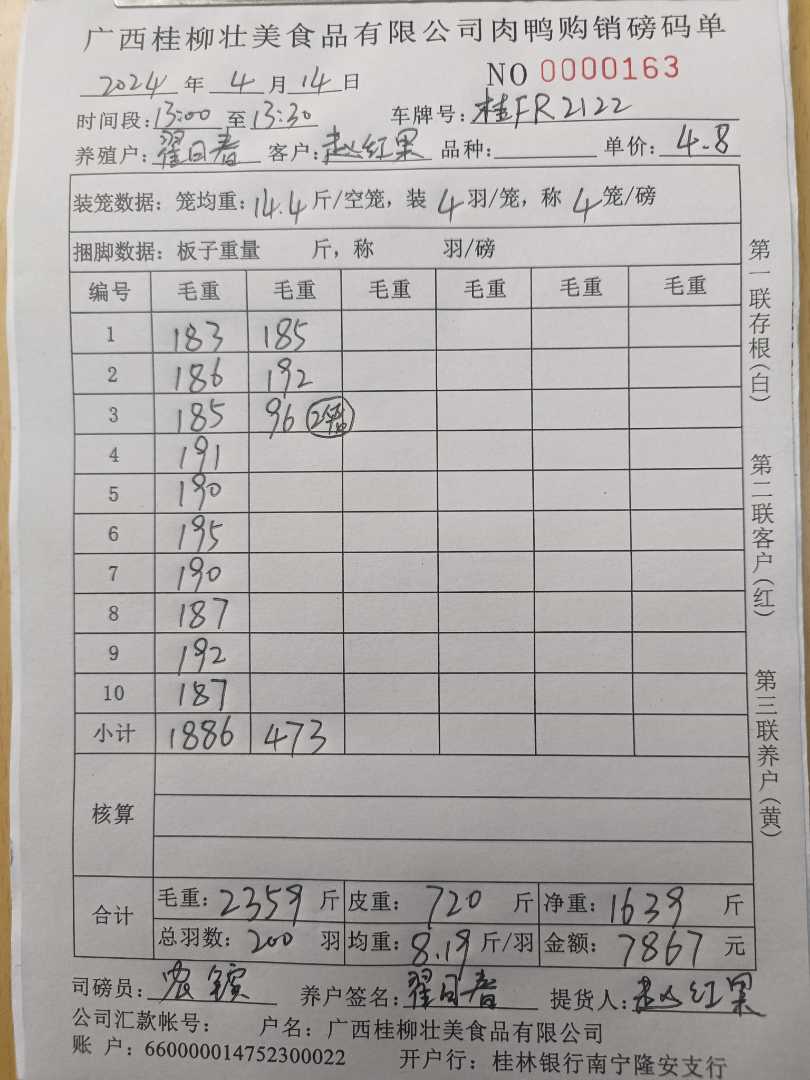 广西桂柳壮美食品有限公司肉鸭购销磅码单
2024 年 4 月 14 日 NO 0000163
时间段:13:00 至 13:30 车牌号:桂FR2122
养殖户:翟日春 客户:赵红果 品种: 单价:4.8
装笼数据:笼均重:14.4 斤/空笼,装 4 羽/笼,称 4 笼/磅
捆脚数据:板子重量 斤,称 羽/磅
编号 毛重 毛重 毛重 毛重 毛重 毛重
1 183 185
2 186 192
3 185 96 2笼
4 191
5 190
6 195
7 190
8 187
9 192
10 187
小计 1886 473
核算
合计 毛重:2359 斤 皮重:720 斤 净重:1639 斤
总羽数:200 羽 均重:8.19 斤/羽 金额:7867 元
司磅员:农 养户签名:翟日春 提货人:赵红果
公司汇款帐号: 户名:广西桂柳壮美食品有限公司
账 户:660000014752300022 开户行:桂林银行南宁隆安支行
第一联存根(白)
第二联客户(红)
第三联养户(黄)